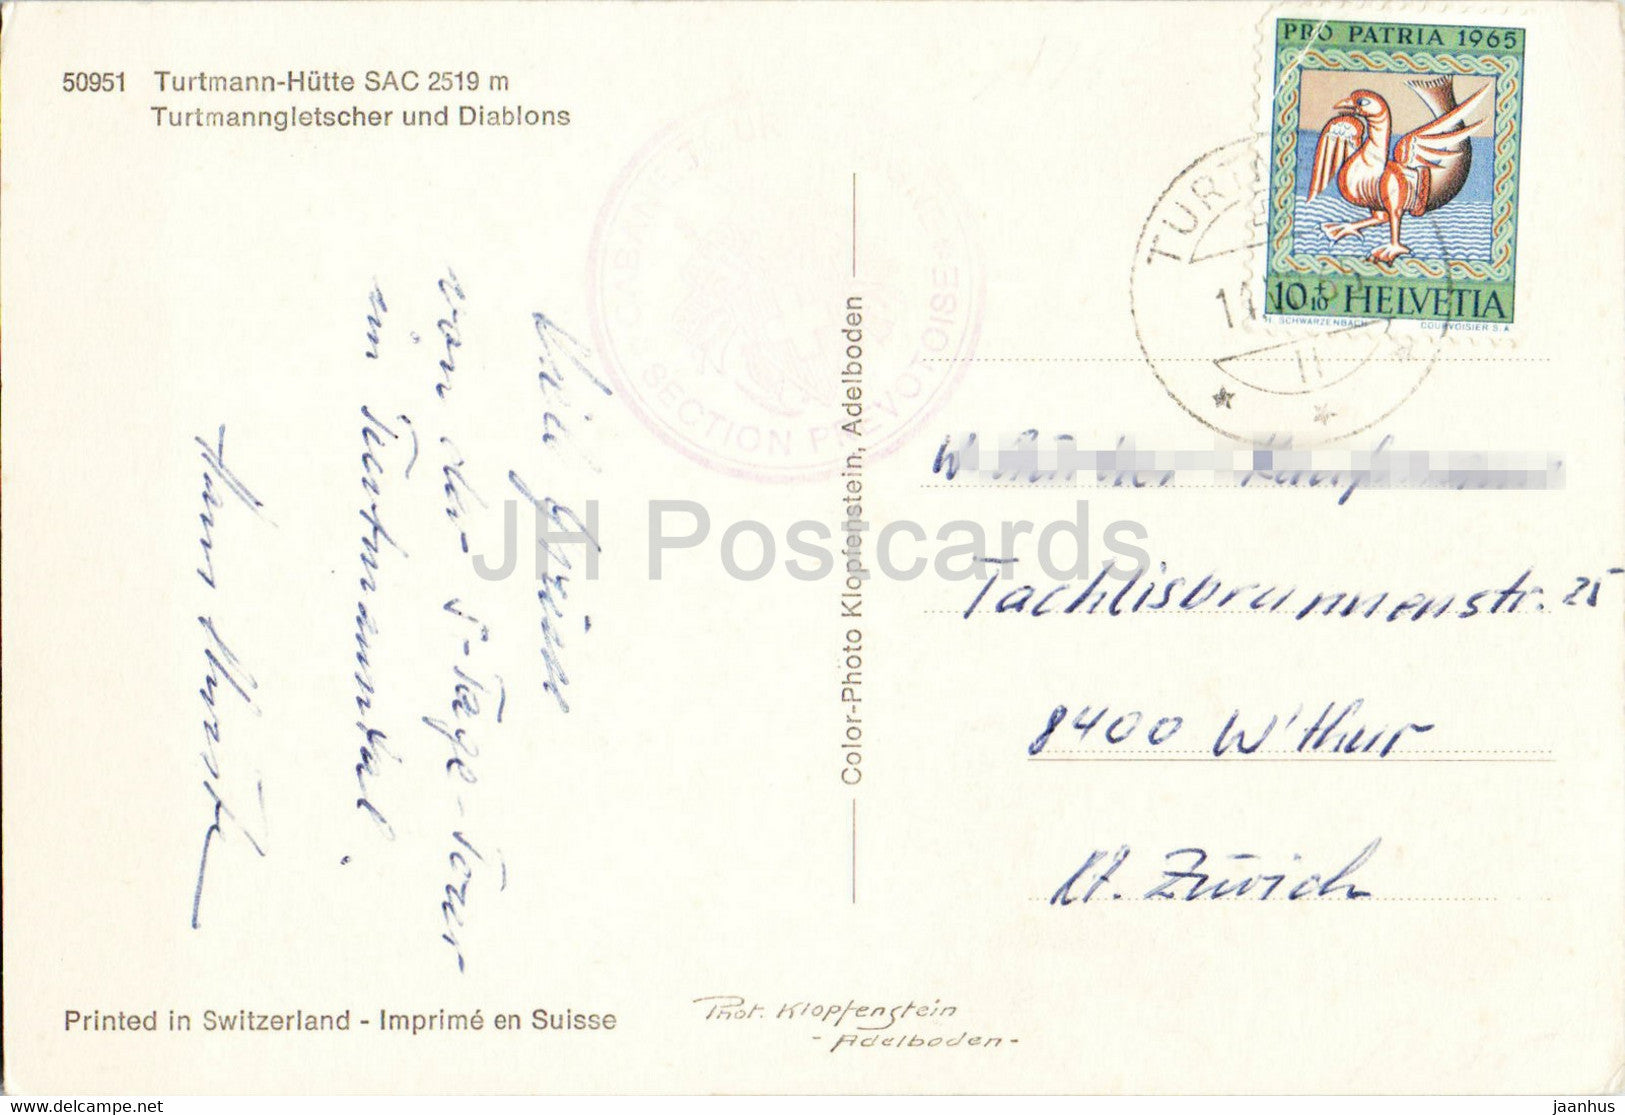 50951 Turtmann-Hütte SAC 2519 m
Turtmanngletscher und Diablons
PRO PATRIA 1965
10+10 HELVETIA
H. SCHWARZENBACH
COURVOISIER S.A
SECTION PREVOTOISE
Color-Photo Klopfenstein, Adelboden
Viel Grüsse
von der 5-Tage-Tour
im Turtmanntal.
Hans
Tachlisbrunnenstr. 25
8400 W'thur
Kt. Zürich
JH Postcards
Printed in Switzerland - Imprimé en Suisse
Phot. Klopfenstein
- Adelboden -
www.delcampe.net
jaanhus